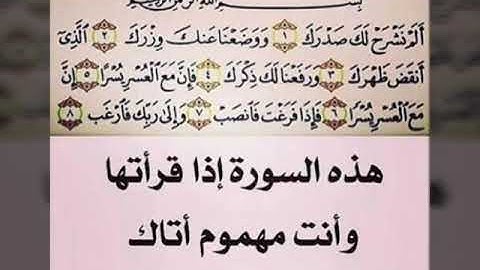 بِسْمِ اللَّهِ الرَّحْمَٰنِ الرَّحِيمِ
أَلَمْ نَشْرَحْ لَكَ صَدْرَكَ ١ وَوَضَعْنَا عَنكَ وِزْرَكَ ٢ ٱلَّذِىٓ
أَنقَضَ ظَهْرَكَ ٣ وَرَفَعْنَا لَكَ ذِكْرَكَ ٤ فَإِنَّ مَعَ ٱلْعُسْرِ يُسْرًا ٥ إِنَّ
مَعَ ٱلْعُسْرِ يُسْرًا ٦ فَإِذَا فَرَغْتَ فَٱنصَبْ ٧ وَإِلَىٰ رَبِّكَ فَٱرْغَب ٨
هذه السورة إذا قرأتها
وأنت مهموم أتاك